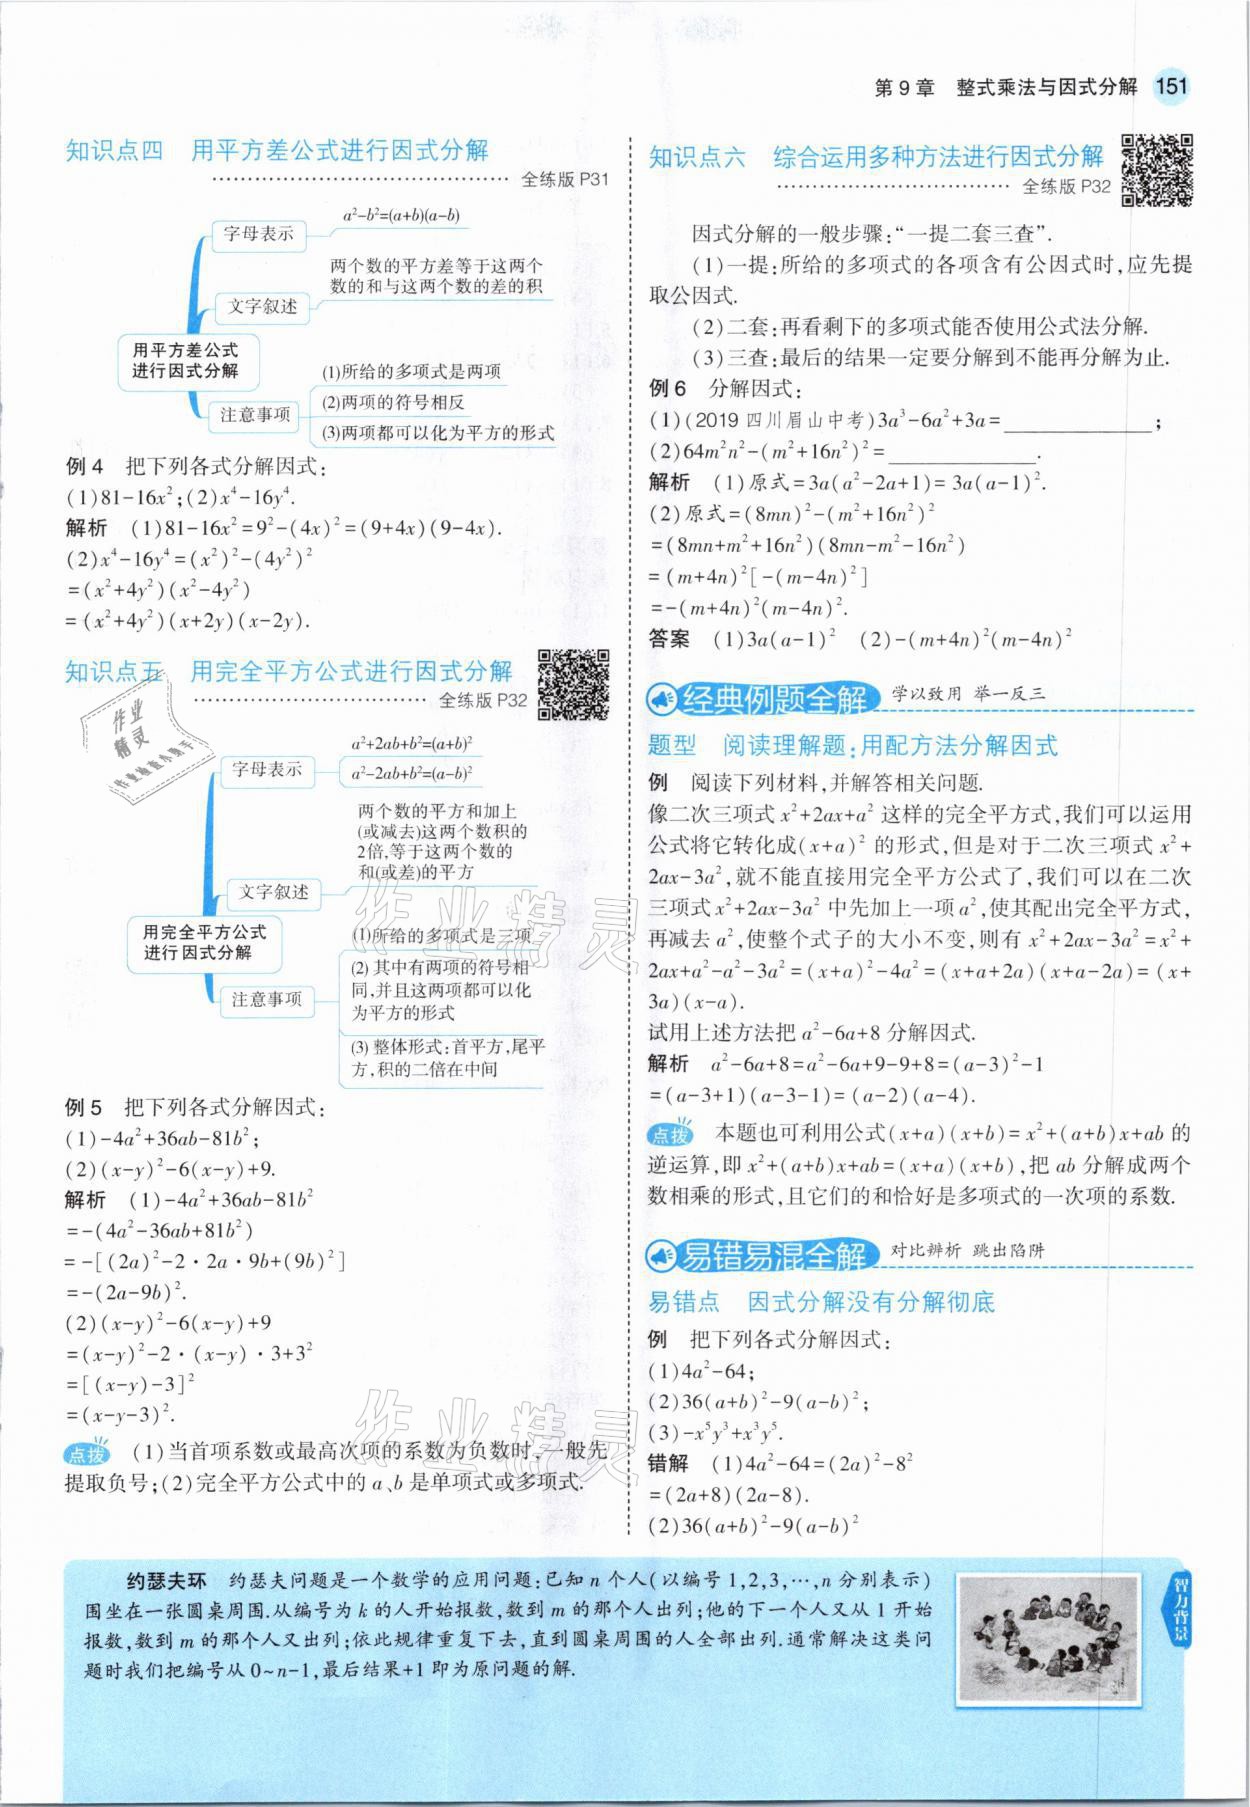 第9章 整式乘法与因式分解 151
知识点四 用平方差公式进行因式分解
全练版 P31
a²-b²=(a+b)(a-b)
字母表示
两个数的平方差等于这两个
数的和与这两个数的差的积
文字叙述
用平方差公式
进行因式分解
(1)所给的多项式是两项
(2)两项的符号相反
注意事项
(3)两项都可以化为平方的形式
例4 把下列各式分解因式:
(1)81-16x²;(2)x⁴-16y⁴.
解析 (1)81-16x²=9²-(4x)²=(9+4x)(9-4x).
(2)x⁴-16y⁴=(x²)²-(4y²)²
=(x²+4y²)(x²-4y²)
=(x²+4y²)(x+2y)(x-2y).
知识点五 用完全平方公式进行因式分解
全练版 P32
a²+2ab+b²=(a+b)²
字母表示
a²-2ab+b²=(a-b)²
两个数的平方和加上
(或减去)这两个数积的
2倍,等于这两个数的
和(或差)的平方
文字叙述
用完全平方公式
进行因式分解
(1)所给的多项式是三项
(2)其中有两项的符号相
同,并且这两项都可以化
为平方的形式
注意事项
(3)整体形式:首平方,尾平
方,积的二倍在中间
例5 把下列各式分解因式:
(1)-4a²+36ab-81b²;
(2)(x-y)²-6(x-y)+9.
解析 (1)-4a²+36ab-81b²
=-(4a²-36ab+81b²)
=-[(2a)²-2·2a·9b+(9b)²]
=-(2a-9b)².
(2)(x-y)²-6(x-y)+9
=(x-y)²-2·(x-y)·3+3²
=[(x-y)-3]²
=(x-y-3)².
点拨 (1)当首项系数或最高次项的系数为负数时,一般先
提取负号;(2)完全平方公式中的a、b是单项式或多项式.
知识点六 综合运用多种方法进行因式分解
全练版 P32
因式分解的一般步骤:“一提二套三查”.
(1)一提:所给的多项式的各项含有公因式时,应先提
取公因式.
(2)二套:再看剩下的多项式能否使用公式法分解.
(3)三查:最后的结果一定要分解到不能再分解为止.
例6 分解因式:
(1)(2019四川眉山中考)3a³-6a²+3a=____________;
(2)64m²n²-(m²+16n²)²=____________.
解析 (1)原式=3a(a²-2a+1)=3a(a-1)².
(2)原式=(8mn)²-(m²+16n²)²
=(8mn+m²+16n²)(8mn-m²-16n²)
=(m+4n)²[-(m-4n)²]
=-(m+4n)²(m-4n)².
答案 (1)3a(a-1)² (2)-(m+4n)²(m-4n)²
经典例题全解 学以致用 举一反三
题型 阅读理解题:用配方法分解因式
例 阅读下列材料,并解答相关问题.
像二次三项式x²+2ax+a²这样的完全平方式,我们可以运用
公式将它转化成(x+a)²的形式,但是对于二次三项式x²+
2ax-3a²,就不能直接用完全平方公式了,我们可以在二次
三项式x²+2ax-3a²中先加上一项a²,使其配出完全平方式,
再减去a²,使整个式子的大小不变,则有x²+2ax-3a²=x²+
2ax+a²-a²-3a²=(x+a)²-4a²=(x+a+2a)(x+a-2a)=(x+
3a)(x-a).
试用上述方法把a²-6a+8分解因式.
解析 a²-6a+8=a²-6a+9-9+8=(a-3)²-1
=(a-3+1)(a-3-1)=(a-2)(a-4).
点拨 本题也可利用公式(x+a)(x+b)=x²+(a+b)x+ab的
逆运算,即x²+(a+b)x+ab=(x+a)(x+b),把ab分解成两个
数相乘的形式,且它们的和恰好是多项式的一次项的系数.
易错易混全解 对比辨析 跳出陷阱
易错点 因式分解没有分解彻底
例 把下列各式分解因式:
(1)4a²-64;
(2)36(a+b)²-9(a-b)²;
(3)-x⁵y³+x³y⁵.
错解 (1)4a²-64=(2a)²-8²
=(2a+8)(2a-8).
(2)36(a+b)²-9(a-b)²
约瑟夫环 约瑟夫问题是一个数学的应用问题:已知n个人(以编号1,2,3,…,n分别表示)
围坐在一张圆桌周围.从编号为k的人开始报数,数到m的那个人出列;他的下一个人又从1开始
报数,数到m的那个人又出列;依此规律重复下去,直到圆桌周围的人全部出列.通常解决这类问
题时我们把编号从0~n-1,最后结果+1即为原问题的解.
智力背景
作业
精灵
作业精灵
作业精灵